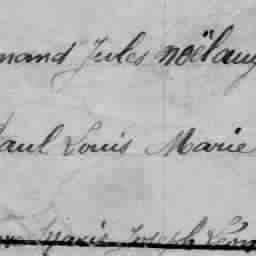 mand Jules noël aug
Paul Louis Marie
Marie Joseph Léon